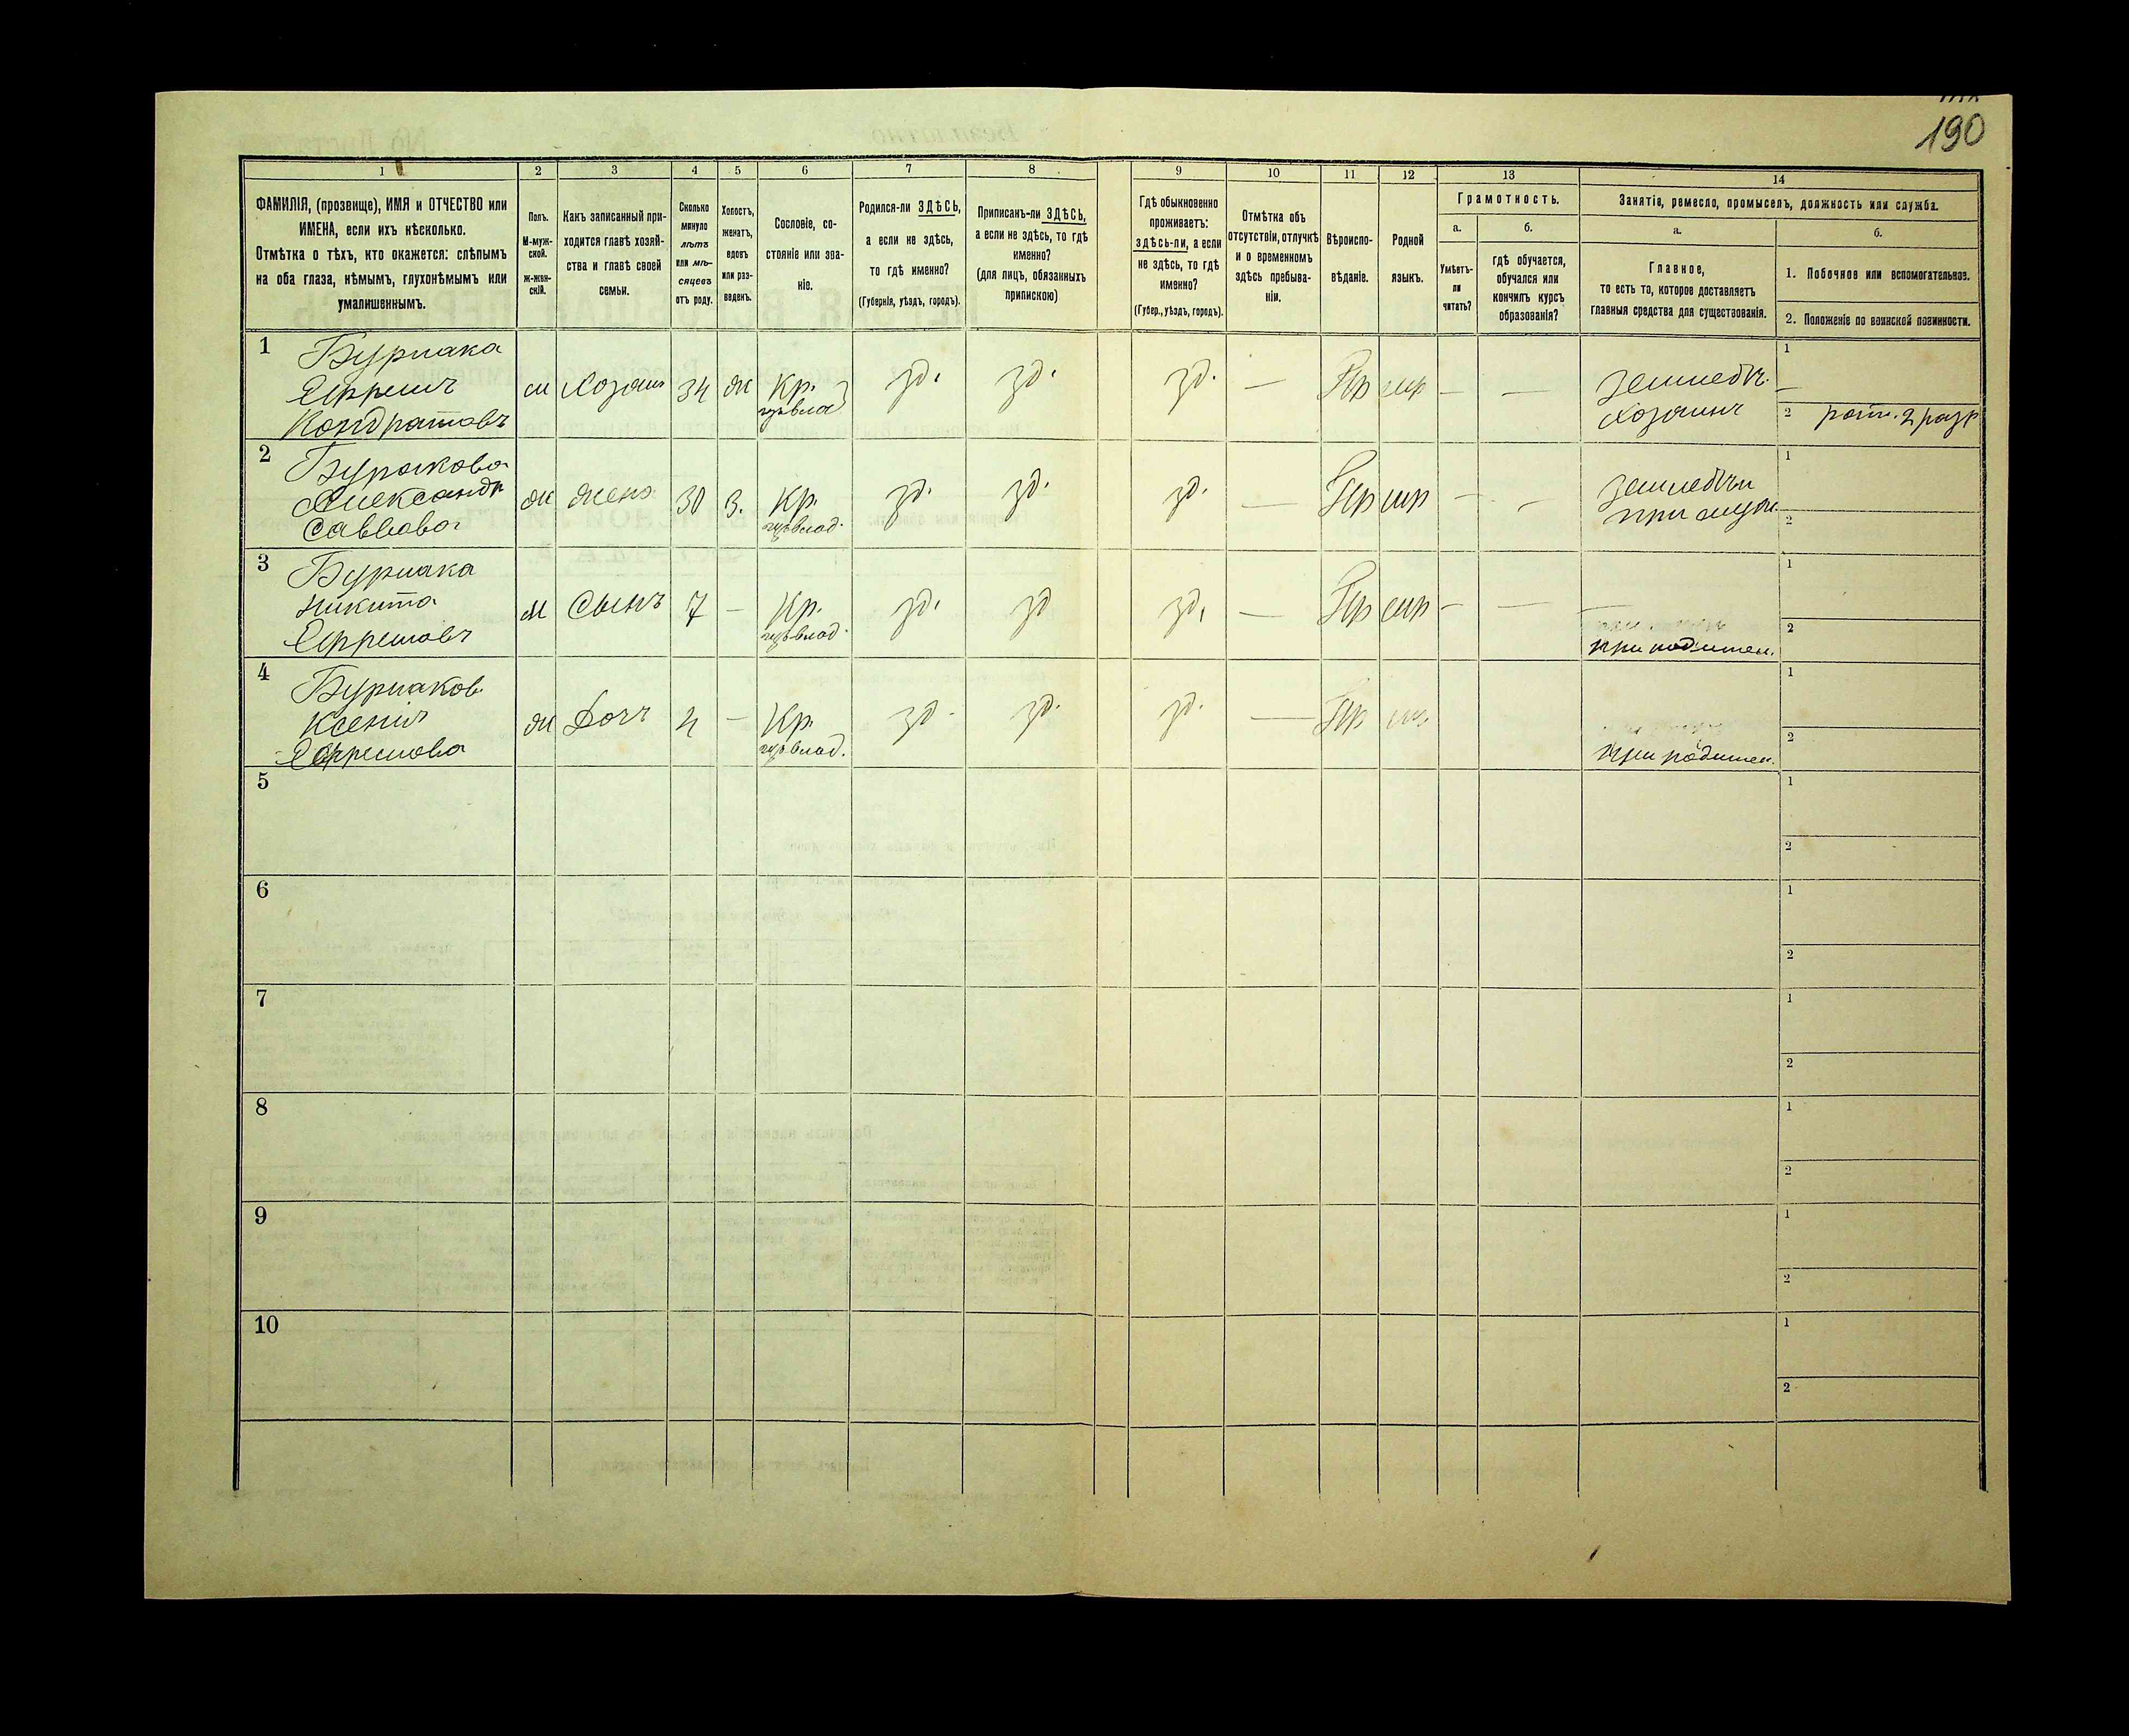 190
1
2
3
4
5
6
7
8
9
10
11
12
13
14
ФАМИЛІЯ, (прозвище), ИМЯ и ОТЧЕСТВО или
ИМЕНА, если ихъ нѣсколько.
Отмѣтка о тѣхъ, кто окажется: слѣпымъ
на оба глаза, нѣмымъ, глухонѣмымъ или
умалишеннымъ.
Полъ.
М-муж-
ской.
ж-жен-
скій.
Какъ записанный при-
ходится главѣ хозяй-
ства и главѣ своей
семьи.
Сколько
минуло
лѣтъ
или мѣ-
сяцевъ
отъ роду.
Холостъ,
женатъ,
вдовъ
или раз-
веденъ.
Сословіе, со-
стояніе или зва-
ніе.
Родился-ли ЗДѢСЬ,
а если не здѣсь,
то гдѣ именно?
(Губернія, уѣздъ, городъ).
Приписанъ-ли ЗДѢСЬ,
а если не здѣсь, то гдѣ
именно?
(для лицъ, обязанныхъ
припискою)
Гдѣ обыкновенно
проживаетъ:
здѣсь-ли, а если
не здѣсь, то гдѣ
именно?
(Губер., уѣздъ, городъ).
Отмѣтка объ
отсутствіи, отлучкѣ
и о временномъ
здѣсь пребыва-
ніи.
Вѣроиспо-
вѣданіе.
Родной
языкъ.
Грамотность.
а.
Умѣетъ-
ли
читать?
б.
гдѣ обучается,
обучался или
кончилъ курсъ
образованія?
Занятіе, ремесло, промыселъ, должность или служба.
а.
Главное,
то есть то, которое доставляетъ
главныя средства для существованія.
б.
1. Побочное или вспомогательное.
2. Положеніе по воинской повинности.
1
Бурлака
Ефремъ
Кондратовъ
м
Хозяин
34
ж
Кр.
зд.
зд.
зд.
—
Пр
мр
—
—
земледѣл.
хозяинъ
1
—
2 ратн. 2 разр
2
Бурлакова
Александр
Саввова
ж
жена
30
з.
Кр.
зд.
зд.
зд.
—
Пр
мр
—
—
при муж
1
2
3
Бурлака
Никита
Ефремовъ
м
Сынъ
7
—
Кр.
зд.
зд
зд.
—
Пр
мр
—
—
—
при родител.
1
2
4
Бурлаков.
Ксенія
Ефремова
ж
Дочь
4
—
Кр.
зд.
зд.
зд.
—
Пр
при родител.
1
2
5
1
2
6
1
2
7
1
2
8
1
2
9
1
2
10
1
2